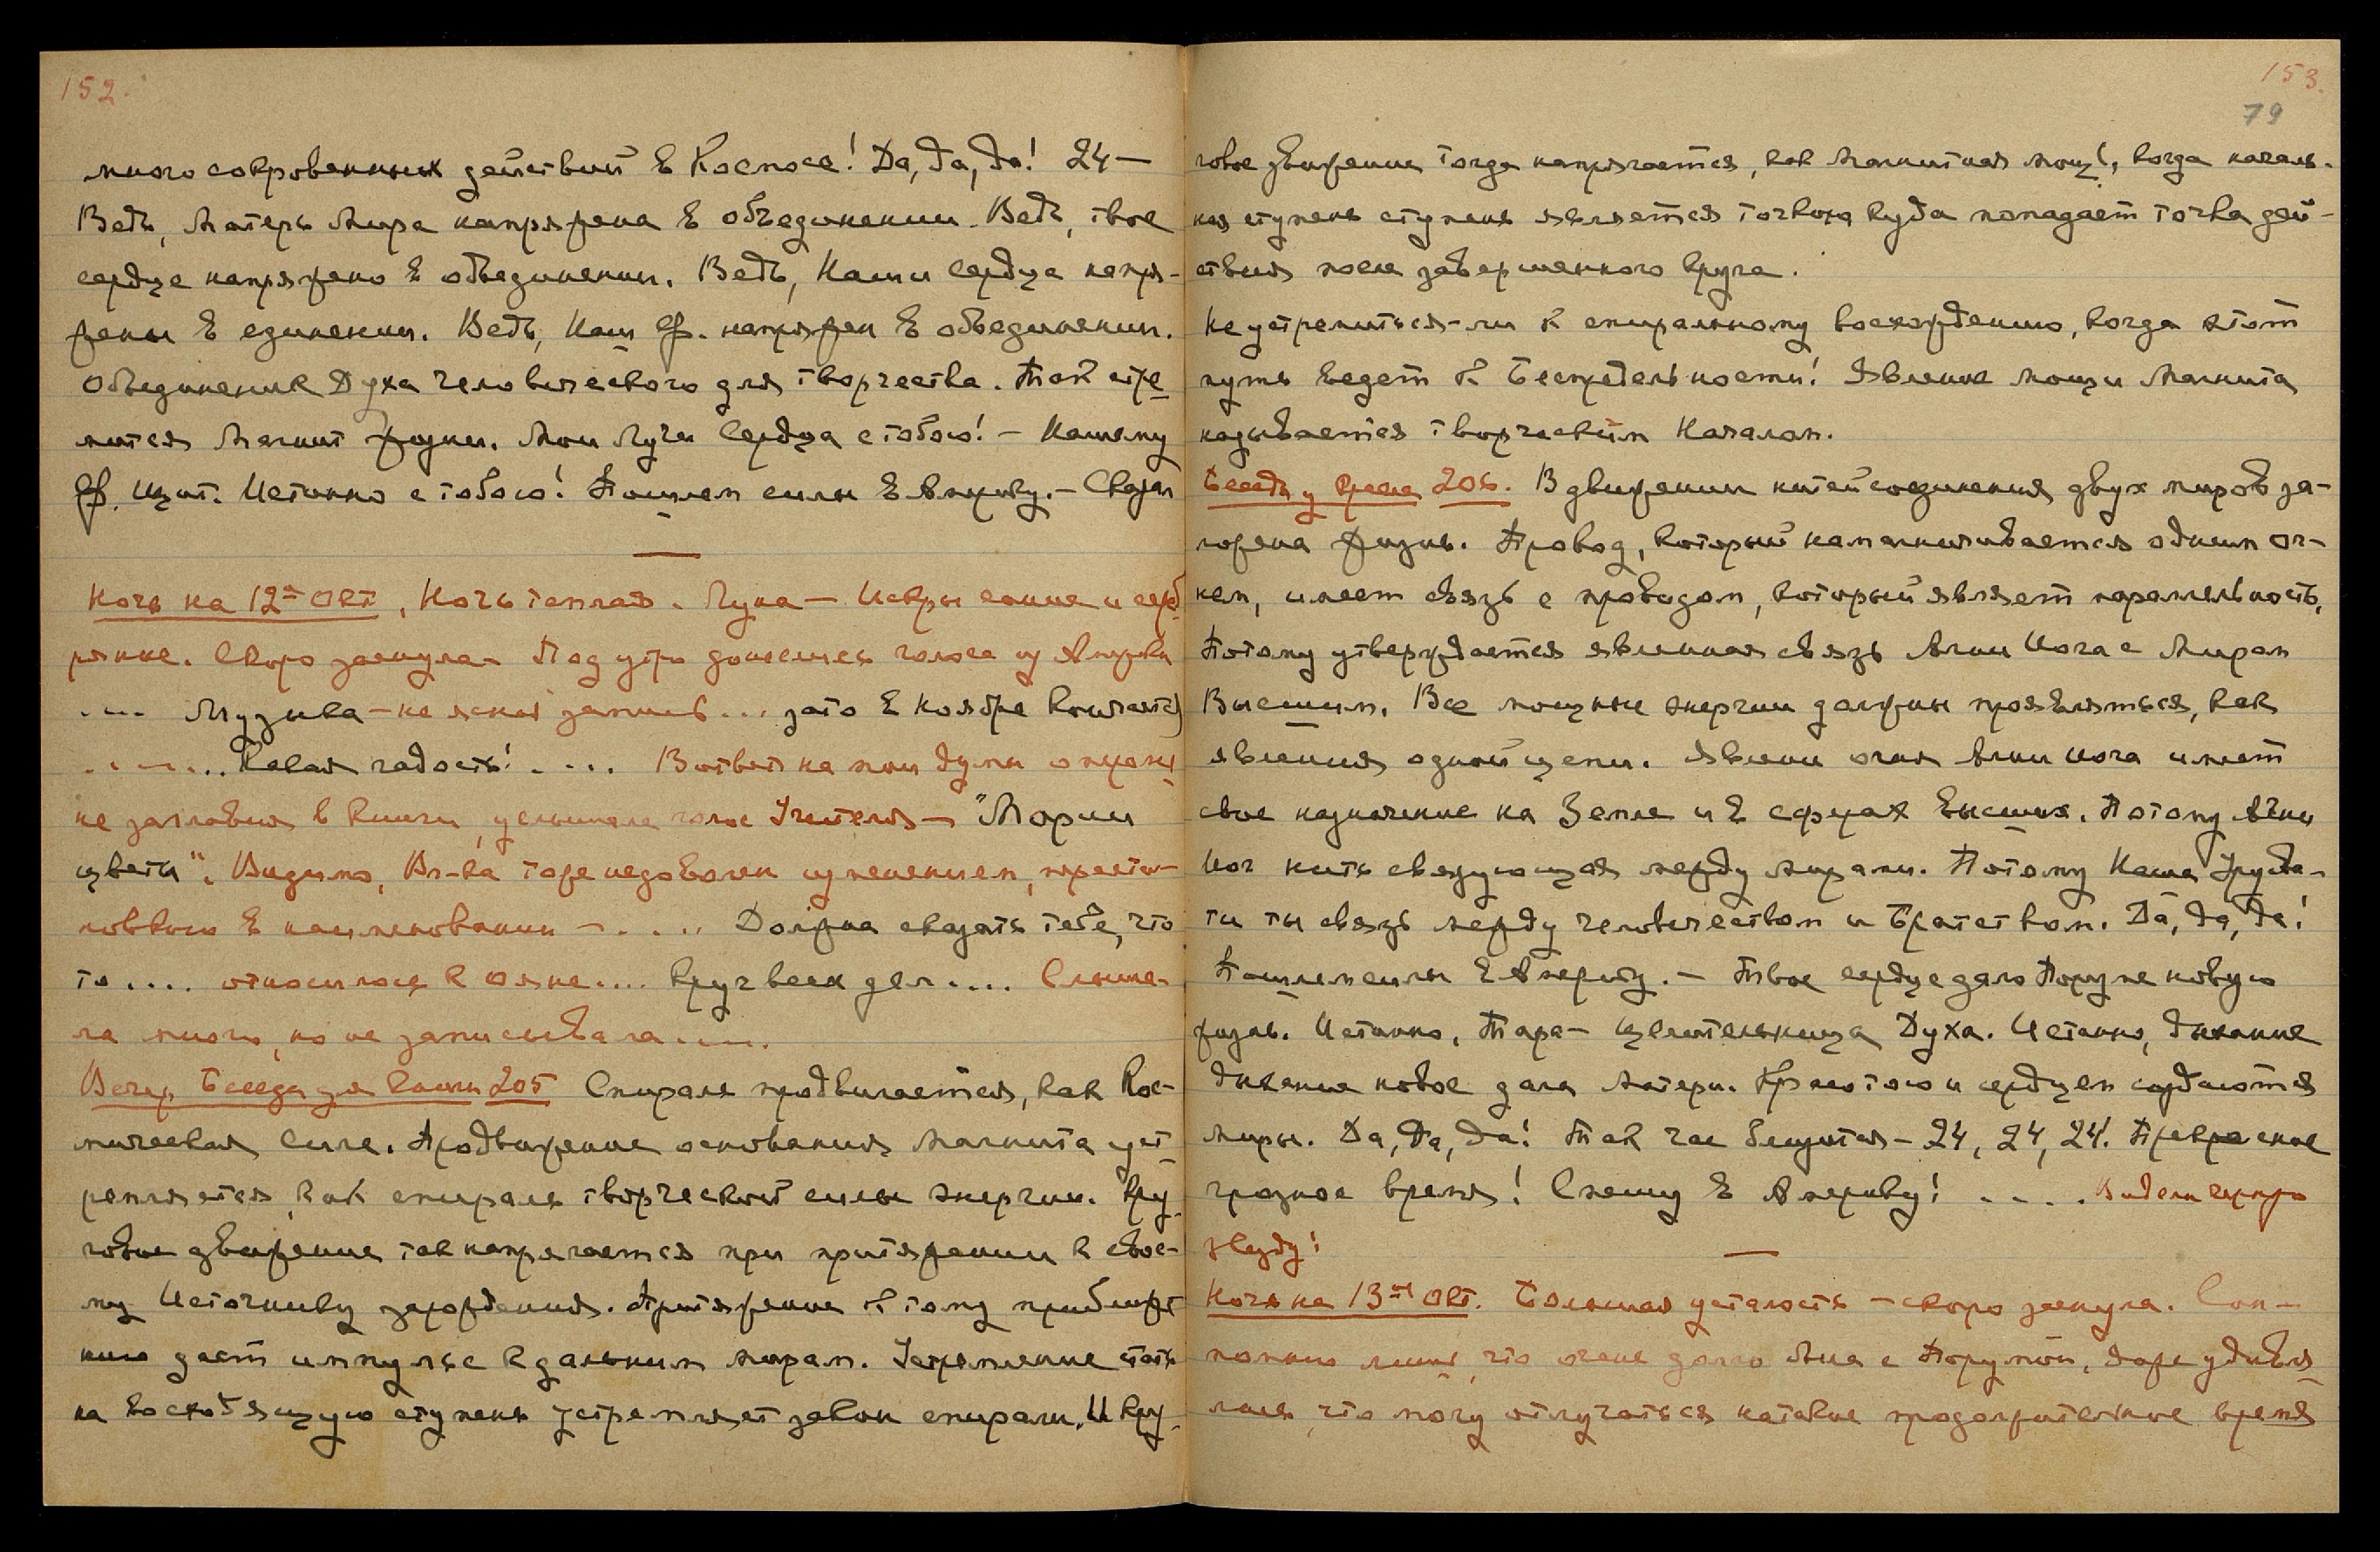 152.
много сокровенных действий в Космосе! Да, да, да! 24 —
Ведь, Матерь Мира напряжена в объединении. Ведь, твое
сердце напряжено в объединении. Ведь, Наши Сердца напря-
жены в единении. Ведь, Наш напряжен в объединении.
Объединение Духа человеческого для творчества. Так стре
мится Магнит жизни. Мои Лучи Сердца с тобою! — Нашему
Щит. Истинно с тобою! Пошлем силы в Америку. — Сказал
—
Ночь на 12ое Окт, Ночь теплая. Луна — Искры синие и сереб
ряные. Скоро заснула — Под утро донеслись голоса из Америки
.... Музыка — не ясная запись ... зато в Ноябре кончается
....... Какая радость! .... В ответ на мои думы о
не заглавия в книги, услышала голос Учителя — "Мории
цветы". Видимо, Вл-ка тоже недоволен изменением,
в наименовании — .... Должна сказать тебе, что
то .... относилось к Ояне.... Круг всех дел .... Слыша-
ла много, но не записывала ....
Вечер. Беседа для Книги 205 Спираль продвигается, как Кос-
мическая Сила. Продвижение основания Магнита уст
ремляется, как спираль творческой силы энергии. Кру
говое движение так напрягается при притяжении к свое-
му Источнику зарождения. Притяжение к тому приближе
нию дает импульс к дальним мирам. Устремление стать
на восходящую ступень устремляет закон спирали. И кру
153.
79
говое движение тогда напрягается, как Магнитная мощь, когда началь-
ная ступень ступень является точкою куда попадает точка дей-
ствия после завершенного круга.
Не устремиться-ли к спиральному восхождению, когда этот
путь ведет к Беспредельности! Явление мощи Магнита
называется творческим Началом.
Беседа у Кресла 206. В движении нитей соединения двух миров за-
ложена жизнь. Провод, который намагничивается одним ог-
нем, имеет связь с проводом, который являет параллельность.
Потому утверждается явленная связь Агни Йога с Миром
Высшим. Все мощные энергии должны проявляться, как
явления одной цепи. Явлени огня Агни Йога имеет
свое назначение на Земле и в сферах высших. Потому Агни
Йог нить связующая между мирами. Потому Наша Урусва-
ти ты связь между человечеством и Братством. Да, да, да!
Пошлем силы в Америку. — Твое сердце дало Поруме новую
жизнь. Истинно, Тара — целительница Духа. Истинно, дыхание
дыхание новое дала Матери. Красотою и сердцем создаются
миры. Да, да, да! Так час близится — 24, 24, 24. Прекрасное
грозное время! Спешу в Америку! .... Видели черную
звезду!
—
Ночь на 13ое Окт. Большая усталость — скоро заснула. Сон —
помню лишь, что очень долго была с Порумой, даже удивля
лась, что могу отлучаться на такое продолжительное время